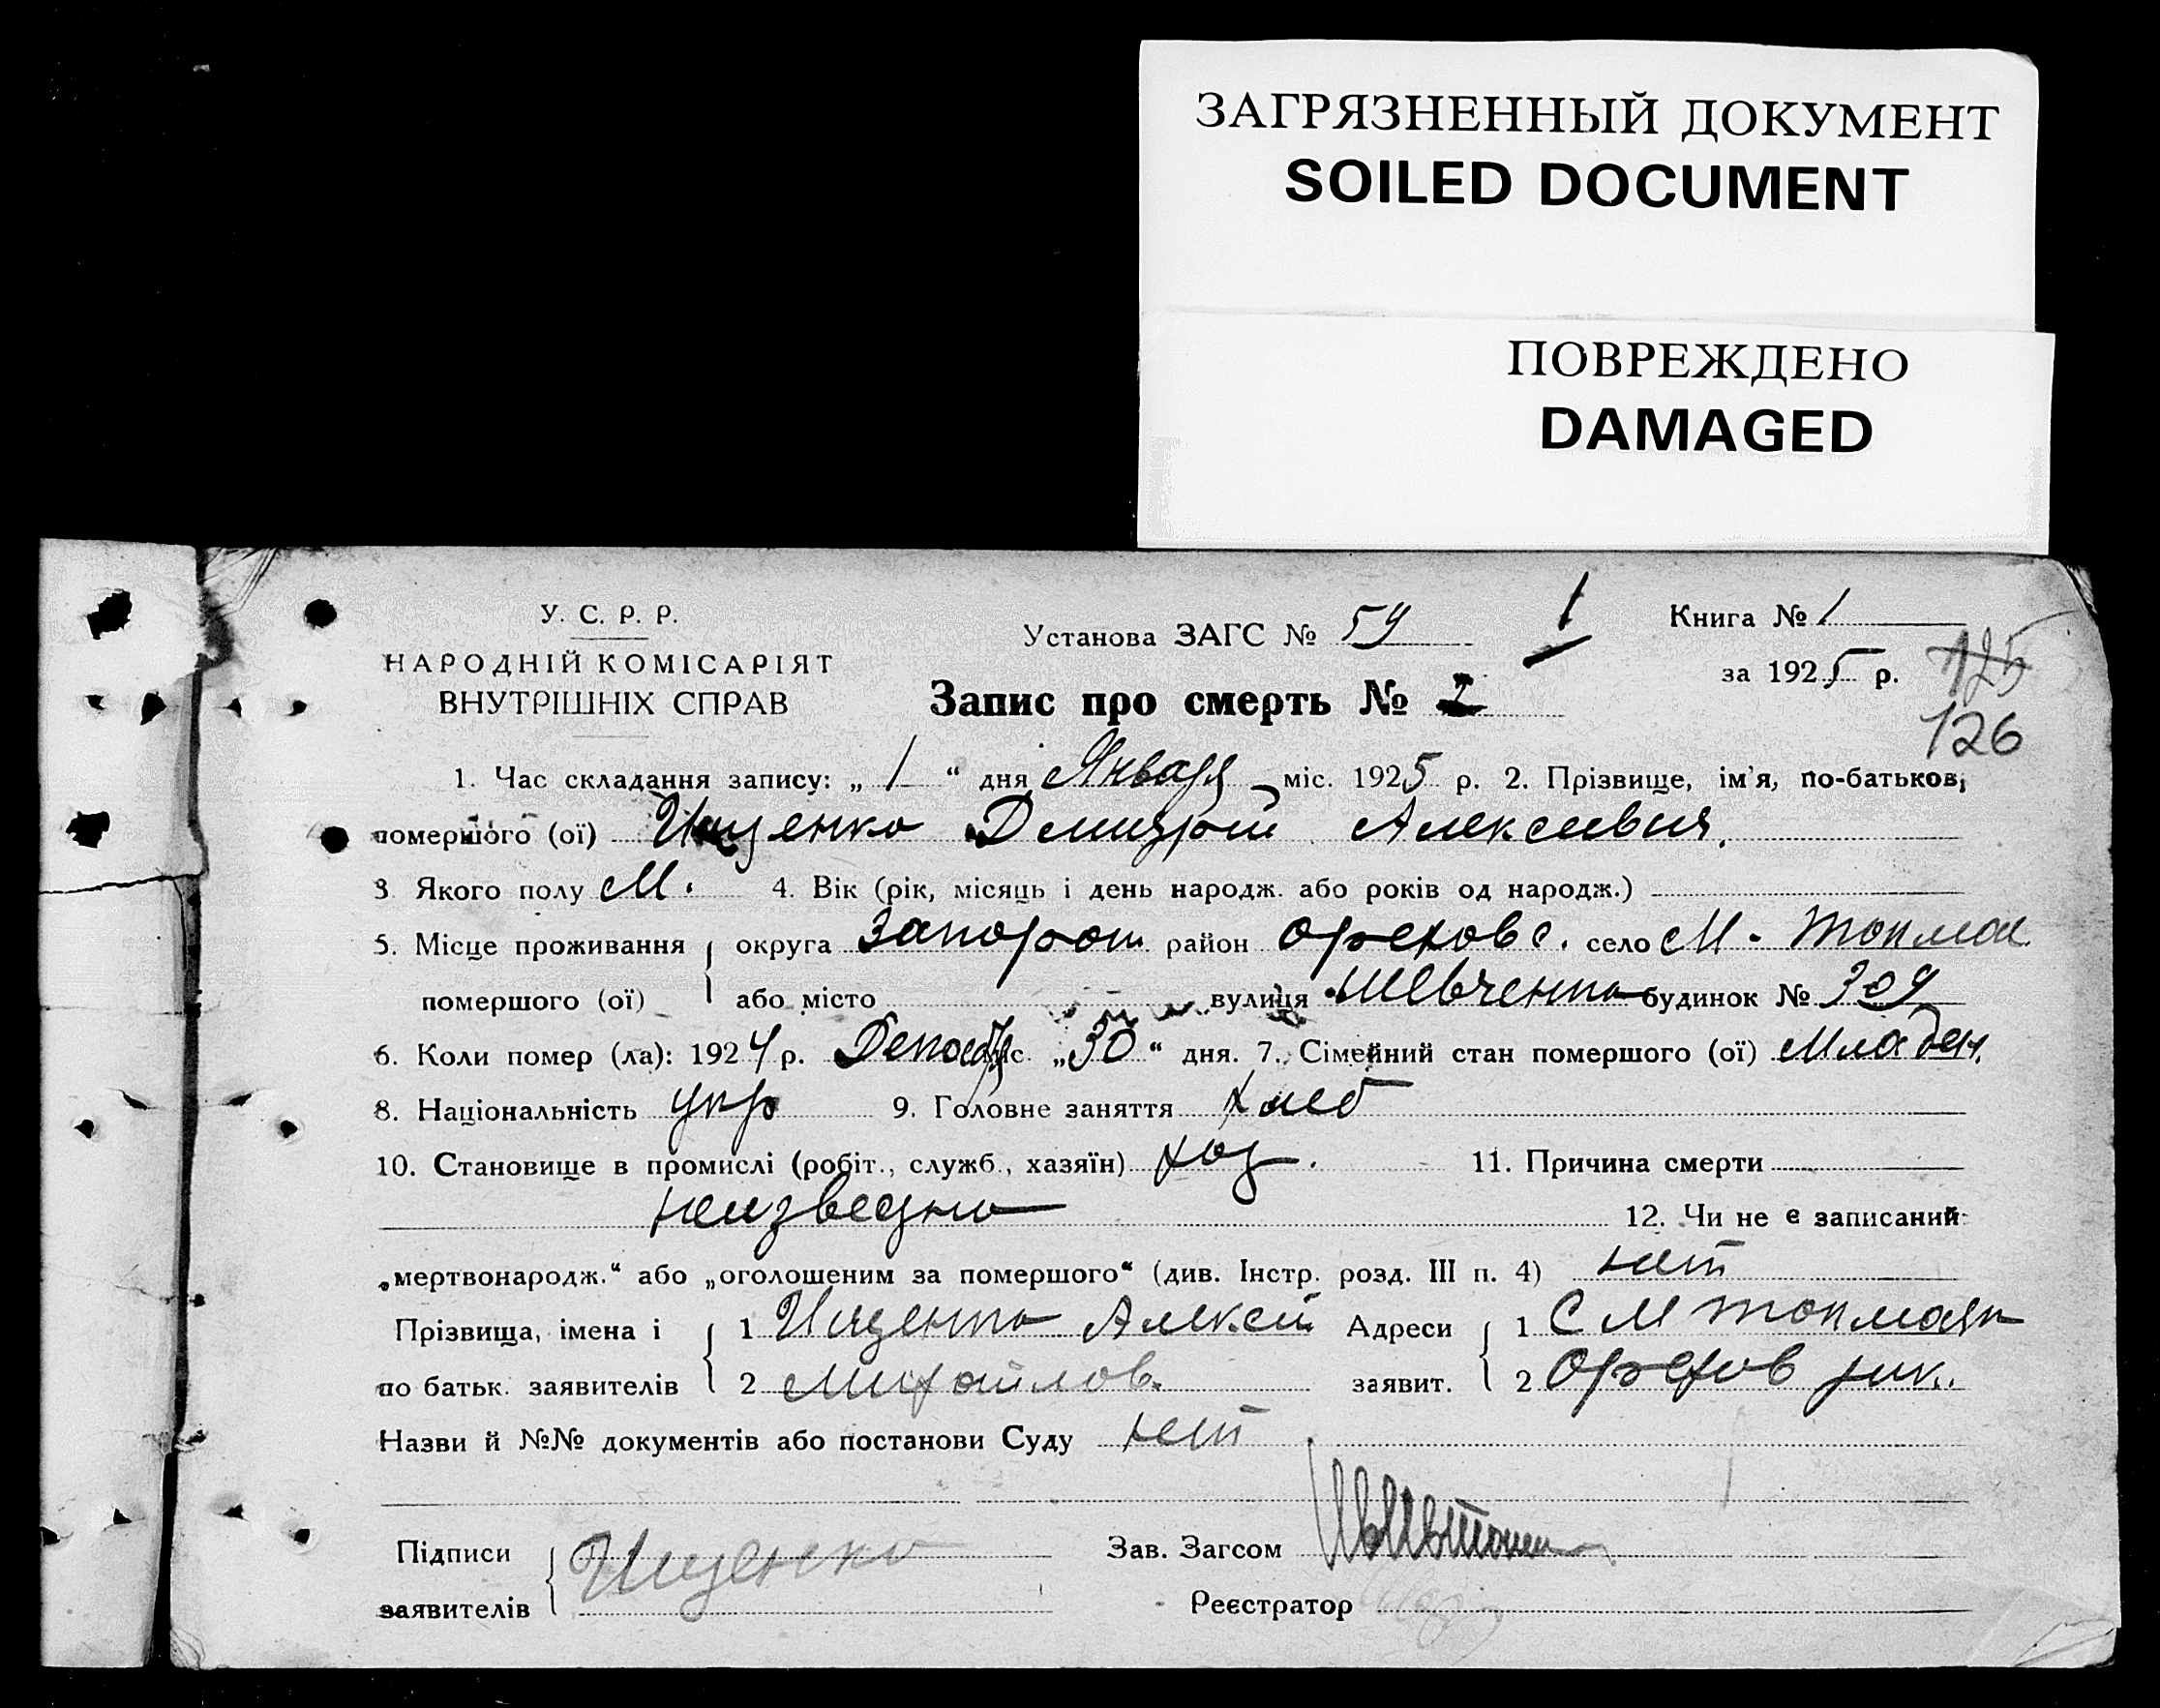 ЗАГРЯЗНЕННЫЙ ДОКУМЕНТ
SOILED DOCUMENT
ПОВРЕЖДЕНО
DAMAGED
У. С. Р. Р.
НАРОДНІЙ КОМІСАРІЯТ
ВНУТРІШНІХ СПРАВ
Установа ЗАГС № 59
1
Книга № 1
за 1925 р.
125
126
Запис про смерть № 2
1. Час складання запису: „ 1 “ дня Января міс. 1925 р. 2. Прізвище, ім'я, по-батькові
помершого (ої) Ищенко Дмитрий Алексеевич.
3. Якого полу М. 4. Вік (рік, місяць і день народж. або років од народж.)
5. Місце проживання округа Запорож район Ореховс. село М. Токмак
помершого (ої) або місто вулиця Шевченко будинок № 309
6. Коли помер (ла): 1924 р. Декабр міс. „30“ дня. 7. Сімейний стан помершого (ої) Младен.
8. Національність укр 9. Головне заняття хлеб
10. Становище в промислі (робіт., служб., хазяїн) хоз. 11. Причина смерти
неизвестно 12. Чи не є записаний
„мертвонародж.“ або „оголошеним за помершого“ (див. Інстр. розд. III п. 4) нет
Прізвища, імена і 1 Ищенко Алексей Адреси 1 С М Токмак
по батьк. заявителів 2 Михайлов. заявит. 2 Орехов рик.
Назви й №№ документів або постанови Суду нет
Підписи Ищенко Зав. Загсом
заявителів Реєстратор